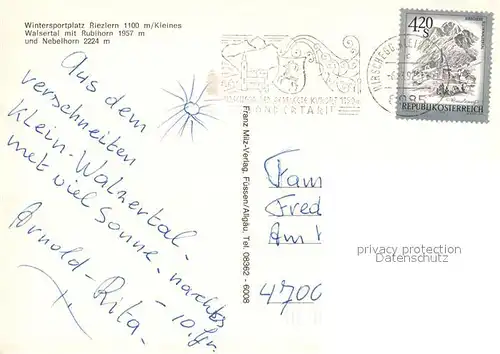 Wintersportplatz Riezlern 1100 m/Kleines
Walsertal mit Rubihorn 1957 m
und Nebelhorn 2224 m
Aus dem
verschneiten
Klein-Walsertal
met viel Sonne - nachts
- 10 Gr.
Arnold - Rita.
Franz Milz-Verlag, Füssen/Allgäu, Tel. 08362 - 6008
HIRSCHEGG, KLEIN
SONDERTARIF
4.20
S
REPUBLIK ÖSTERREICH
Fam
Fred
Am
4700
privacy protection
Datenschutz